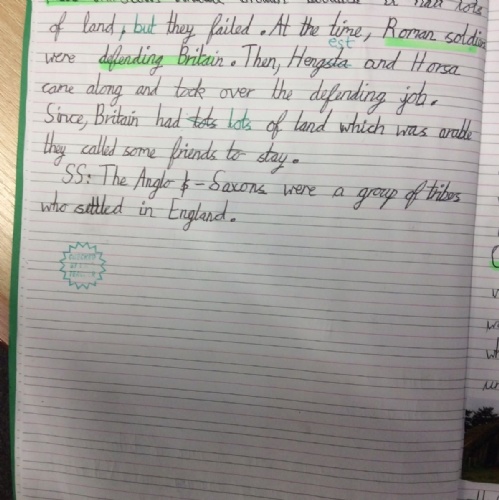 had lots
of land, but they failed. At the time, Roman soldiers
est
were defending Britain. Then, Hengsta and Horsa
came along and took over the defending job.
Since, Britain had lots lots of land which was arable
they called some friends to stay.
SS: The Anglo - Saxons were a group of tribes
who settled in England.